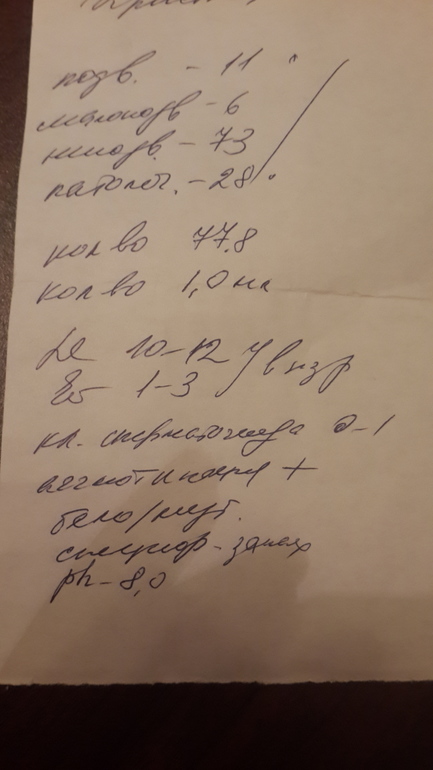 подв. - 11
малоподв - 6
неподв. - 73
патолог. - 28
кол во 77.8
кол во 1,0 мл
Le 10-12 } в п зр
Er 1-3
кл. сперматогенеза 0-1
+
бело/мут.
специф-запах
ph-8,0